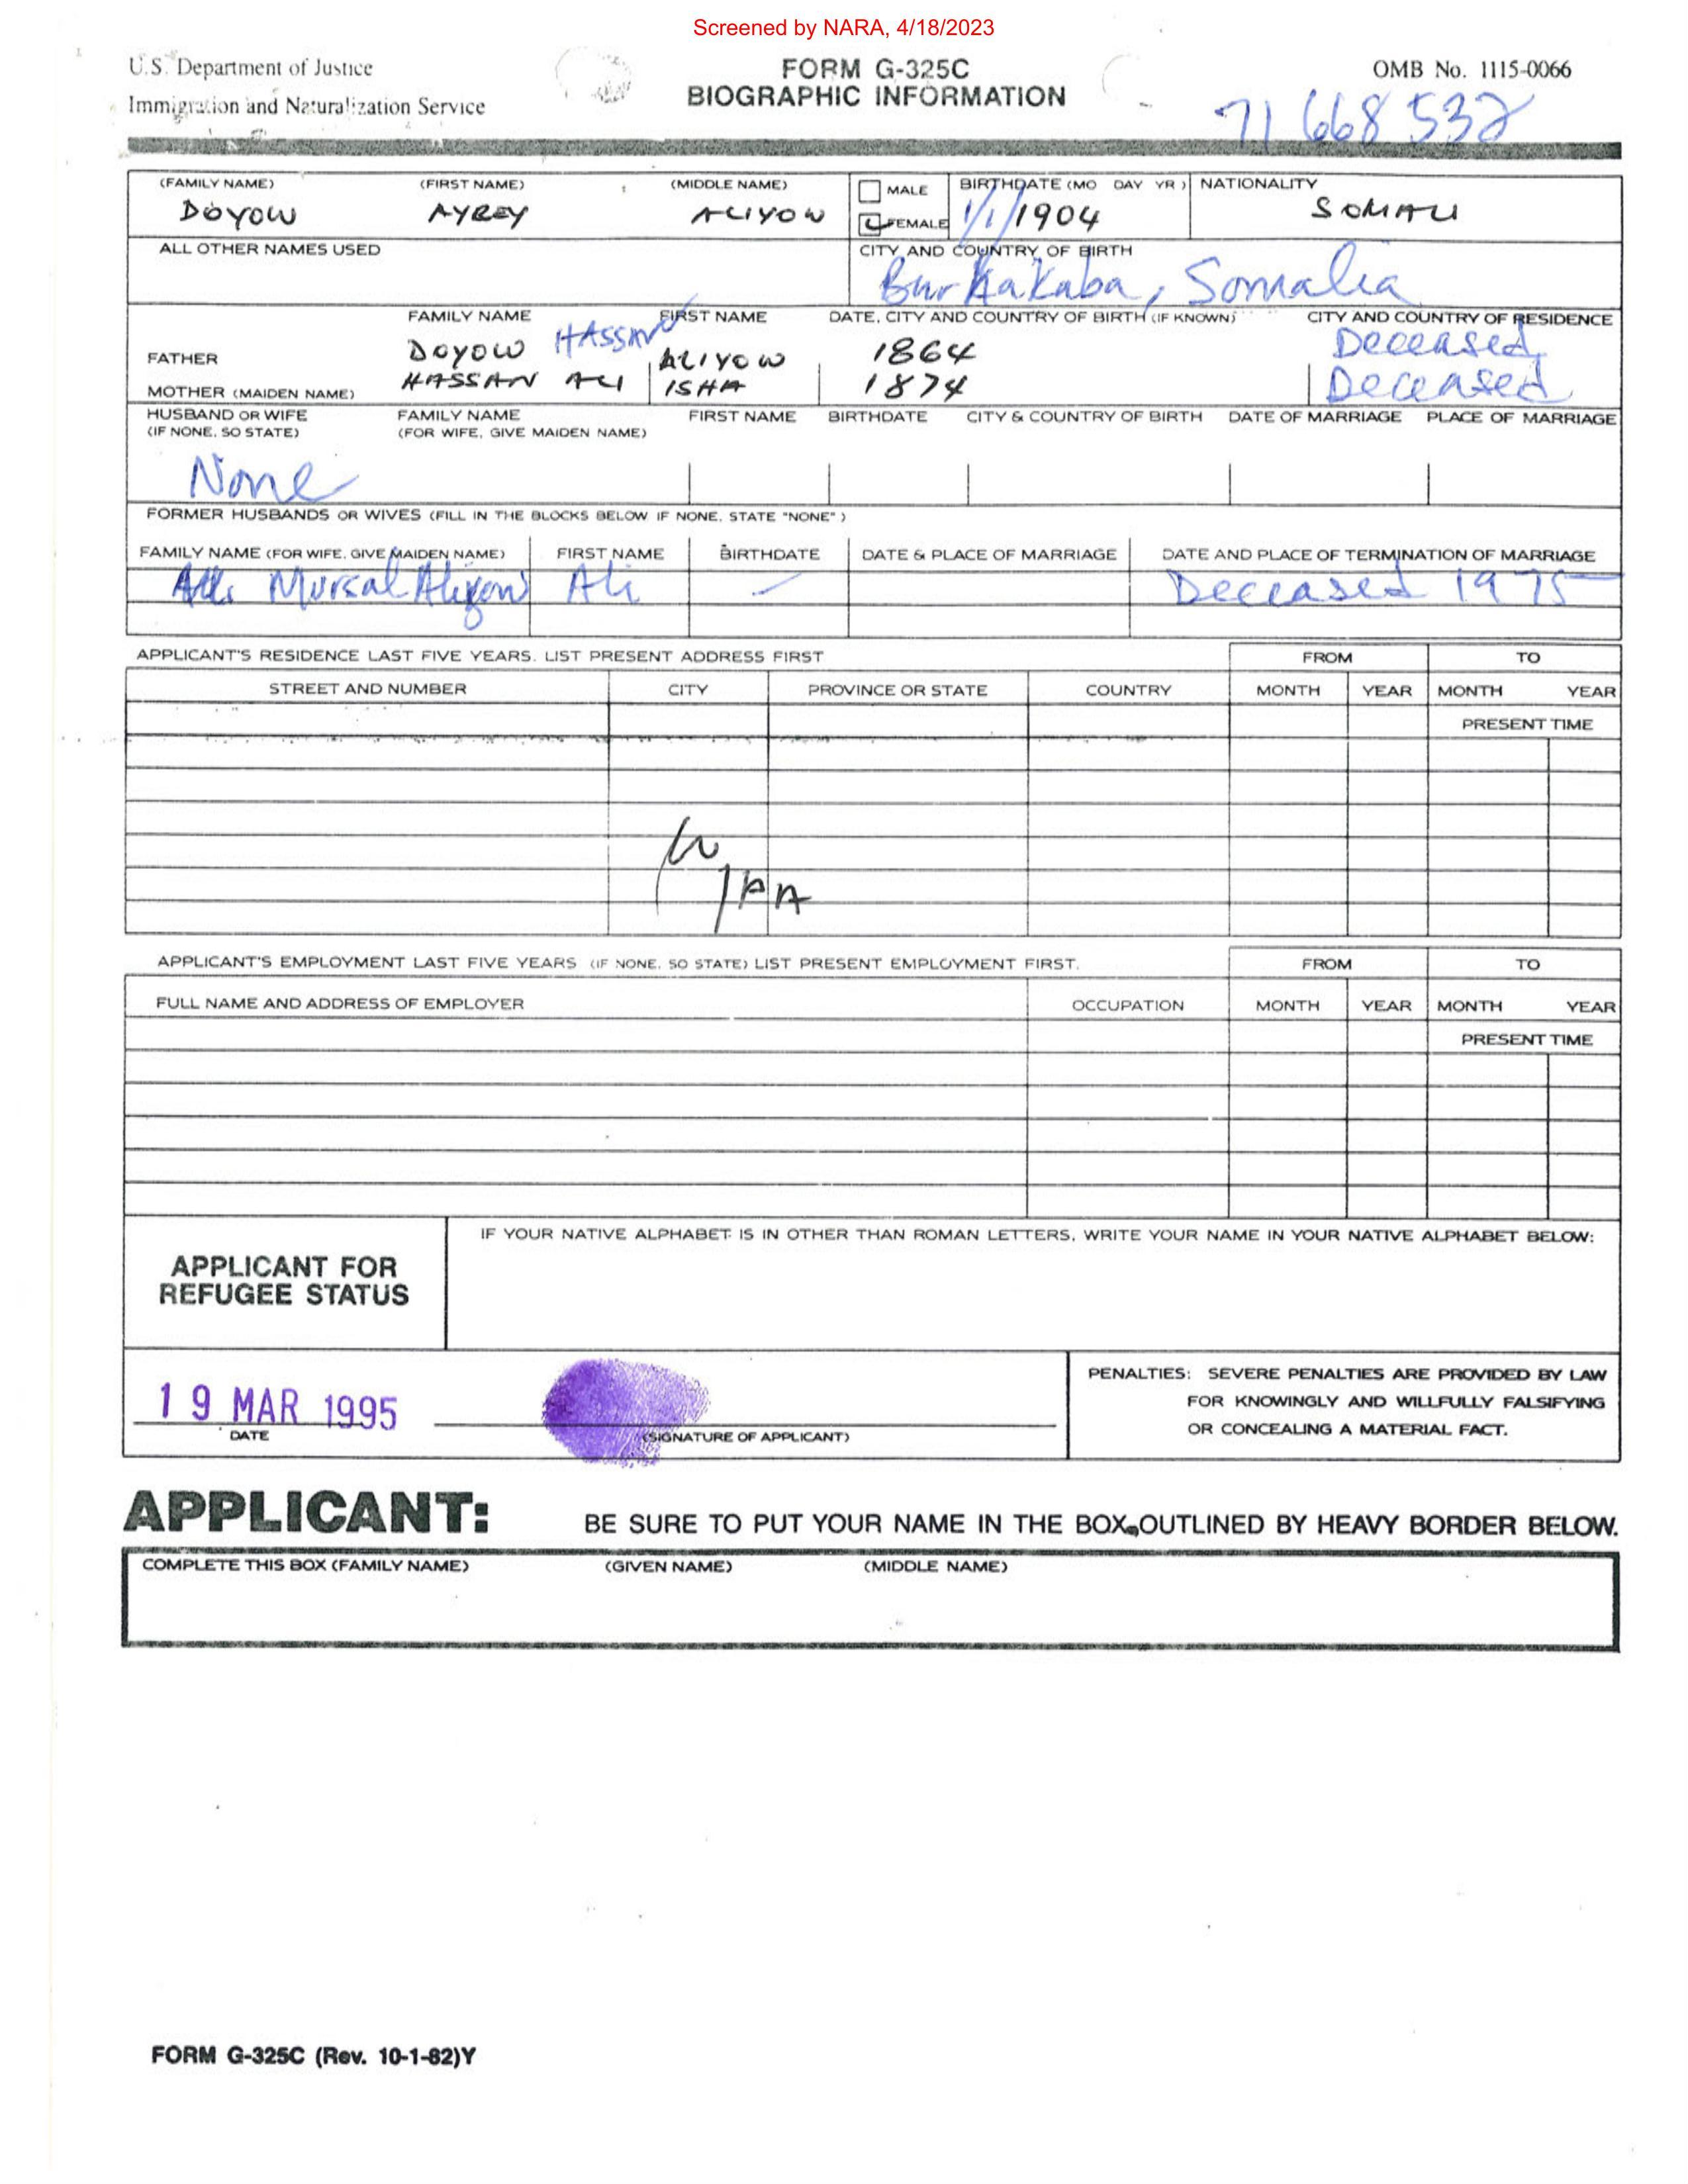 Screened by NARA, 4/18/2023
U.S. Department of Justice
Immigration and Naturalization Service
FORM G-325C
BIOGRAPHIC INFORMATION
OMB No. 1115-0066
71 668 532
(FAMILY NAME) (FIRST NAME) (MIDDLE NAME) MALE BIRTHDATE (MO DAY YR) NATIONALITY
DOYOW AYREY ALIYOW FEMALE 1/1/1904 SOMALI
ALL OTHER NAMES USED CITY AND COUNTRY OF BIRTH
Bur Hakaba, Somalia
FAMILY NAME FIRST NAME DATE, CITY AND COUNTRY OF BIRTH (IF KNOWN) CITY AND COUNTRY OF RESIDENCE
FATHER DOYOW HASSAN ALIYOW 1864 Deceased
MOTHER (MAIDEN NAME) HASSAN ALI ISHA 1874 Deceased
HUSBAND OR WIFE FAMILY NAME FIRST NAME BIRTHDATE CITY & COUNTRY OF BIRTH DATE OF MARRIAGE PLACE OF MARRIAGE
(IF NONE, SO STATE) (FOR WIFE, GIVE MAIDEN NAME)
None
FORMER HUSBANDS OR WIVES (FILL IN THE BLOCKS BELOW IF NONE, STATE "NONE")
FAMILY NAME (FOR WIFE, GIVE MAIDEN NAME) FIRST NAME BIRTHDATE DATE & PLACE OF MARRIAGE DATE AND PLACE OF TERMINATION OF MARRIAGE
Mursal Aliyow Ali - Deceased 1975
APPLICANT'S RESIDENCE LAST FIVE YEARS. LIST PRESENT ADDRESS FIRST FROM TO
STREET AND NUMBER CITY PROVINCE OR STATE COUNTRY MONTH YEAR MONTH YEAR
PRESENT TIME
APPLICANT'S EMPLOYMENT LAST FIVE YEARS (IF NONE, SO STATE) LIST PRESENT EMPLOYMENT FIRST. FROM TO
FULL NAME AND ADDRESS OF EMPLOYER OCCUPATION MONTH YEAR MONTH YEAR
PRESENT TIME
IF YOUR NATIVE ALPHABET IS IN OTHER THAN ROMAN LETTERS, WRITE YOUR NAME IN YOUR NATIVE ALPHABET BELOW:
APPLICANT FOR
REFUGEE STATUS
PENALTIES: SEVERE PENALTIES ARE PROVIDED BY LAW
FOR KNOWINGLY AND WILLFULLY FALSIFYING
OR CONCEALING A MATERIAL FACT.
19 MAR 1995
DATE (SIGNATURE OF APPLICANT)
APPLICANT: BE SURE TO PUT YOUR NAME IN THE BOX OUTLINED BY HEAVY BORDER BELOW.
COMPLETE THIS BOX (FAMILY NAME) (GIVEN NAME) (MIDDLE NAME)
FORM G-325C (Rev. 10-1-82)Y